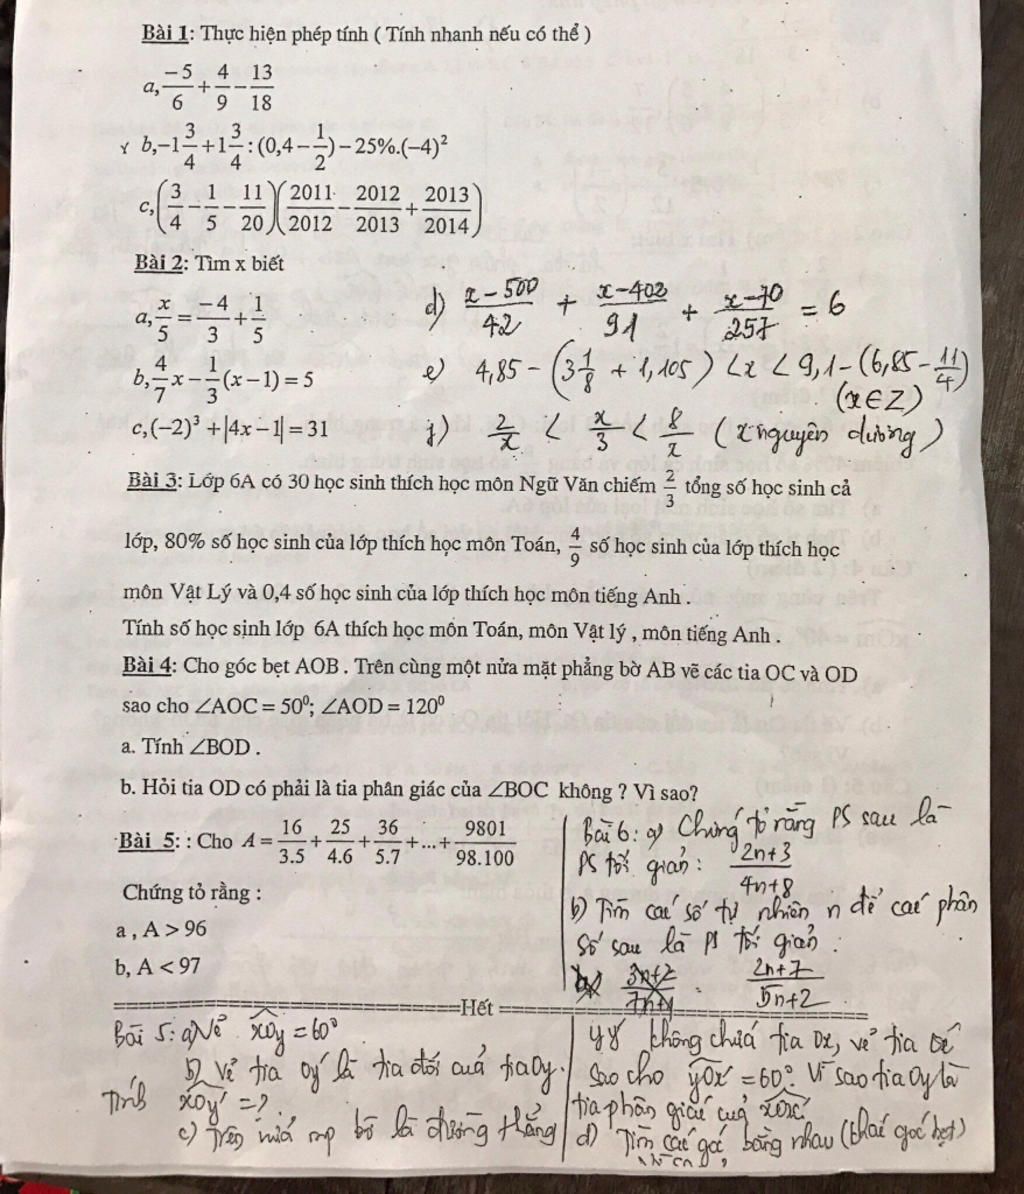 Bài 1: Thực hiện phép tính ( Tính nhanh nếu có thể )
a, -5/6 + 4/9 - 13/18
b, -1 3/4 + 1 3/4 : (0,4 - 1/2) - 25%.(-4)²
c, (3/4 - 1/5 - 11/20)(2011/2012 - 2012/2013 + 2013/2014)
Bài 2: Tìm x biết
a, x/5 = -4/3 + 1/5
b, 4/7 x - 1/3 (x - 1) = 5
c, (-2)³ + |4x - 1| = 31
d) x-500/42 + x-403/91 + x-70/257 = 6
e) 4,85 - (3 1/8 + 1,105) < x < 9,1 - (6,85 - 11/4)
(x ∈ Z)
f) 2/x < x/3 < 8/x (x nguyên dương)
Bài 3: Lớp 6A có 30 học sinh thích học môn Ngữ Văn chiếm 2/3 tổng số học sinh cả
lớp, 80% số học sinh của lớp thích học môn Toán, 4/9 số học sinh của lớp thích học
môn Vật Lý và 0,4 số học sinh của lớp thích học môn tiếng Anh .
Tính số học sinh lớp 6A thích học môn Toán, môn Vật lý , môn tiếng Anh .
Bài 4: Cho góc bẹt AOB . Trên cùng một nửa mặt phẳng bờ AB vẽ các tia OC và OD
sao cho ∠AOC = 50⁰; ∠AOD = 120⁰
a. Tính ∠BOD .
b. Hỏi tia OD có phải là tia phân giác của ∠BOC không ? Vì sao?
Bài 5: : Cho A = 16/3.5 + 25/4.6 + 36/5.7 + ... + 9801/98.100
Chứng tỏ rằng :
a , A > 96
b, A < 97
Bài 6: a) Chứng tỏ rằng PS sau là
PS tối giản: 2n+3/4n+8
b) Tìm các số tự nhiên n để các phân
số sau là PS tối giản :
2n+7/5n+2
Hết
Bài 5: a) Vẽ xOy = 60°
b) Vẽ tia Oy' là tia đối của tia Oy.
Tính xOy' = ?
c) Trên nửa mp bờ là đường thẳng
yy' không chứa tia Ox, vẽ tia
sao cho yOx' = 60°. Vì sao tia Oy là
tia phân giác của xOx'
d) Tìm các góc bằng nhau (khác góc bẹt)